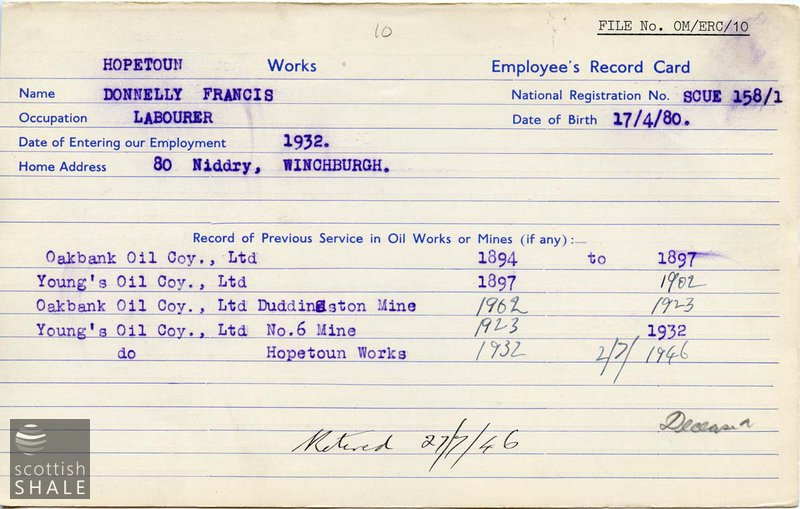 10
FILE No. OM/ERC/10
HOPETOUN Works Employee's Record Card
Name DONNELLY FRANCIS National Registration No. SCUE 158/1
Occupation LABOURER Date of Birth 17/4/80.
Date of Entering our Employment 1932.
Home Address 80 Niddry, WINCHBURGH.
Record of Previous Service in Oil Works or Mines (if any):—
Oakbank Oil Coy., Ltd 1894 to 1897
Young's Oil Coy., Ltd 1897 1902
Oakbank Oil Coy., Ltd Duddingston Mine 1902 1923
Young's Oil Coy., Ltd No.6 Mine 1923 1932
do Hopetoun Works 1932 2/7/1946
Deceased
Retired 27/7/46
scottish
SHALE